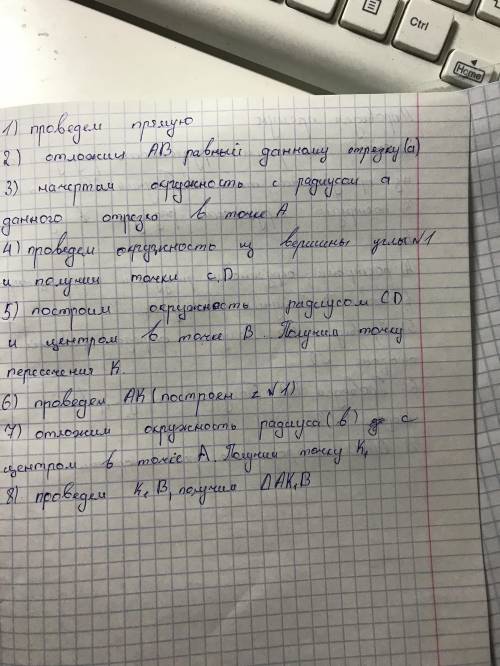 Ctrl
Home
1) проведем прямую
2) отложим AB равный данному отрезку (a)
3) начертим окружность с радиусом a
данного отрезка в точке A
4) проведем окружность из вершины углы №1
и получим точки C, D
5) построим окружность радиусом CD
и центром в точке B. Получим точку
пересечения K.
6) проведем AK (построен ∠ №1)
7) отложим окружность радиуса (b) с
центром в точке A. Получим точку K₁
8) проведем K₁B, получим ΔAK₁B